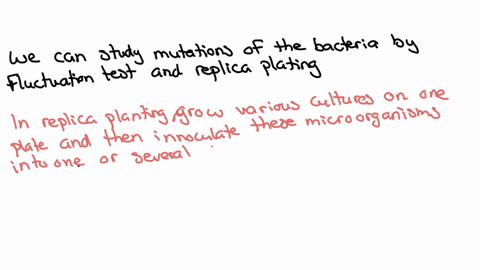 we can study mutations of the bacteria by
Fluctuation test and replica plating
In replica planting, grow various cultures on one
plate and then innoculate these microorganisms
into one or several